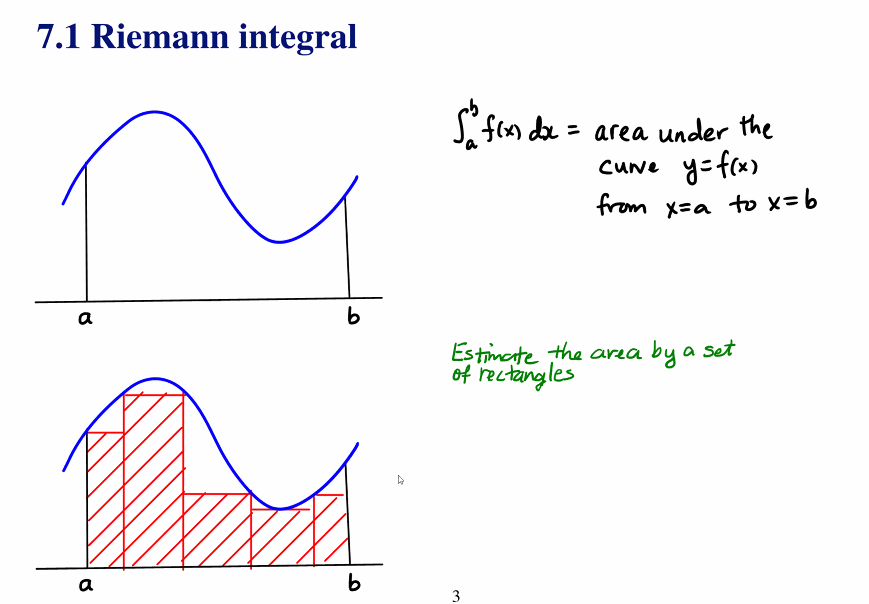 7.1 Riemann integral
∫_a^b f(x) dx = area under the
curve y=f(x)
from x=a to x=b
a b
Estimate the area by a set
of rectangles
a b
3